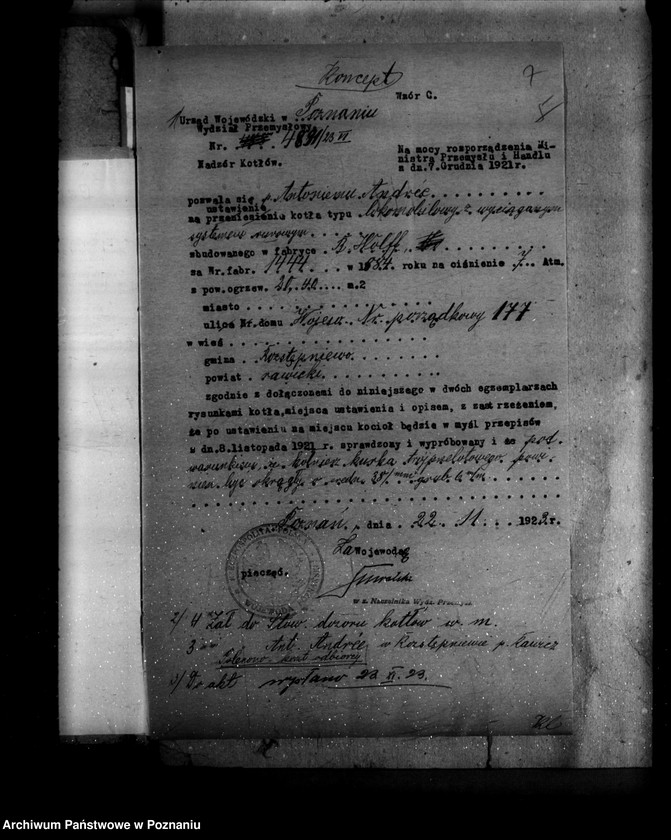 Koncept
7
Wzór C.
5
1/ Urząd Wojewódzki w Poznaniu
Wydział Przemysłowy
Nr. 23 VI
Nadzór Kotłów.
Na mocy rozporządzenia Mi-
nistra Przemysłu i Handlu
z dn.7.Grudnia 1921r.
pozwala się p. Antoniemu Andrée
ustawienie
na przeniesienie kotła typu lokomobilowy z wyciąganym
systemem rurowym
zbudowanego w fabryce R. Wolff
za Nr.fabr. 1444 w 1884 roku na ciśnienie 7 Atm.
z pow.ogrzew. m.2
miasto
ulica Nr.domu Nr. porządkowy 177
w wieś
gmina
powiat rawicki
zgodnie z dołączonemi do niniejszego w dwóch egzemplarzach
rysunkami kotła,miejsca ustawienia i opisem, z zastrzeżeniem,
że po ustawieniu na miejscu kocioł będzie w myśl przepisów
z dn.8.listopada 1921 r. sprawdzony i wypróbowany i ze pod
warunkiem, że kołnierz kurka
być okrągły o
Poznań, dnia 22. 1922r.
Za Wojewodę
pieczęć.
w z. Naczelnika Wydz. Przemysł.
2/ 4 zał do Stow. dozoru kotłów w. m.
3 Ant. Andrée w p.
koszt odbiorcy
3/ Do akt wysłano 23. II. 23.
Archiwum Państwowe w Poznaniu